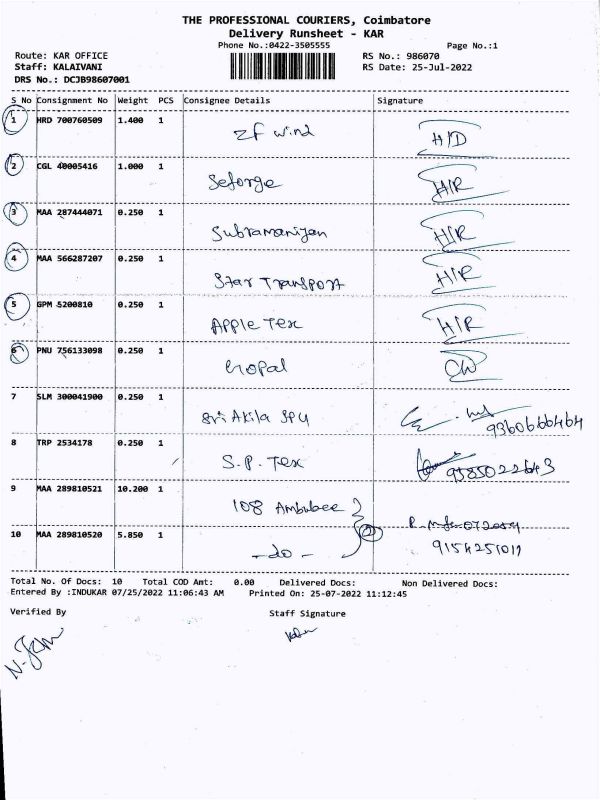 THE PROFESSIONAL COURIERS, Coimbatore
Delivery Runsheet - KAR
Phone No.:0422-3505555 Page No.:1
Route: KAR OFFICE RS No.: 986070
Staff: KALAIVANI RS Date: 25-Jul-2022
DRS No.: DCJB98607001
S No Consignment No Weight PCS Consignee Details Signature
1 HRD 700760509 1.400 1 ZF Wind H/D
2 CGL 40005416 1.000 1 Seforge H/R
3 MAA 287444071 0.250 1 Subramaniyan H/R
4 MAA 566287207 0.250 1 Star Transport H/R
5 GPM 5200810 0.250 1 Apple Tex H/R
6 PNU 756133098 0.250 1 Gopal
7 SLM 300041900 0.250 1 Sri Akila
9360666464
8 TRP 2534178 0.250 1 S.P. Tex
9 MAA 289810521 10.200 1 108
10 MAA 289810520 5.850 1 -do- 2
9154251011
Total No. Of Docs: 10 Total COD Amt: 0.00 Delivered Docs: Non Delivered Docs:
Entered By :INDUKAR 07/25/2022 11:06:43 AM Printed On: 25-07-2022 11:12:45
Verified By Staff Signature